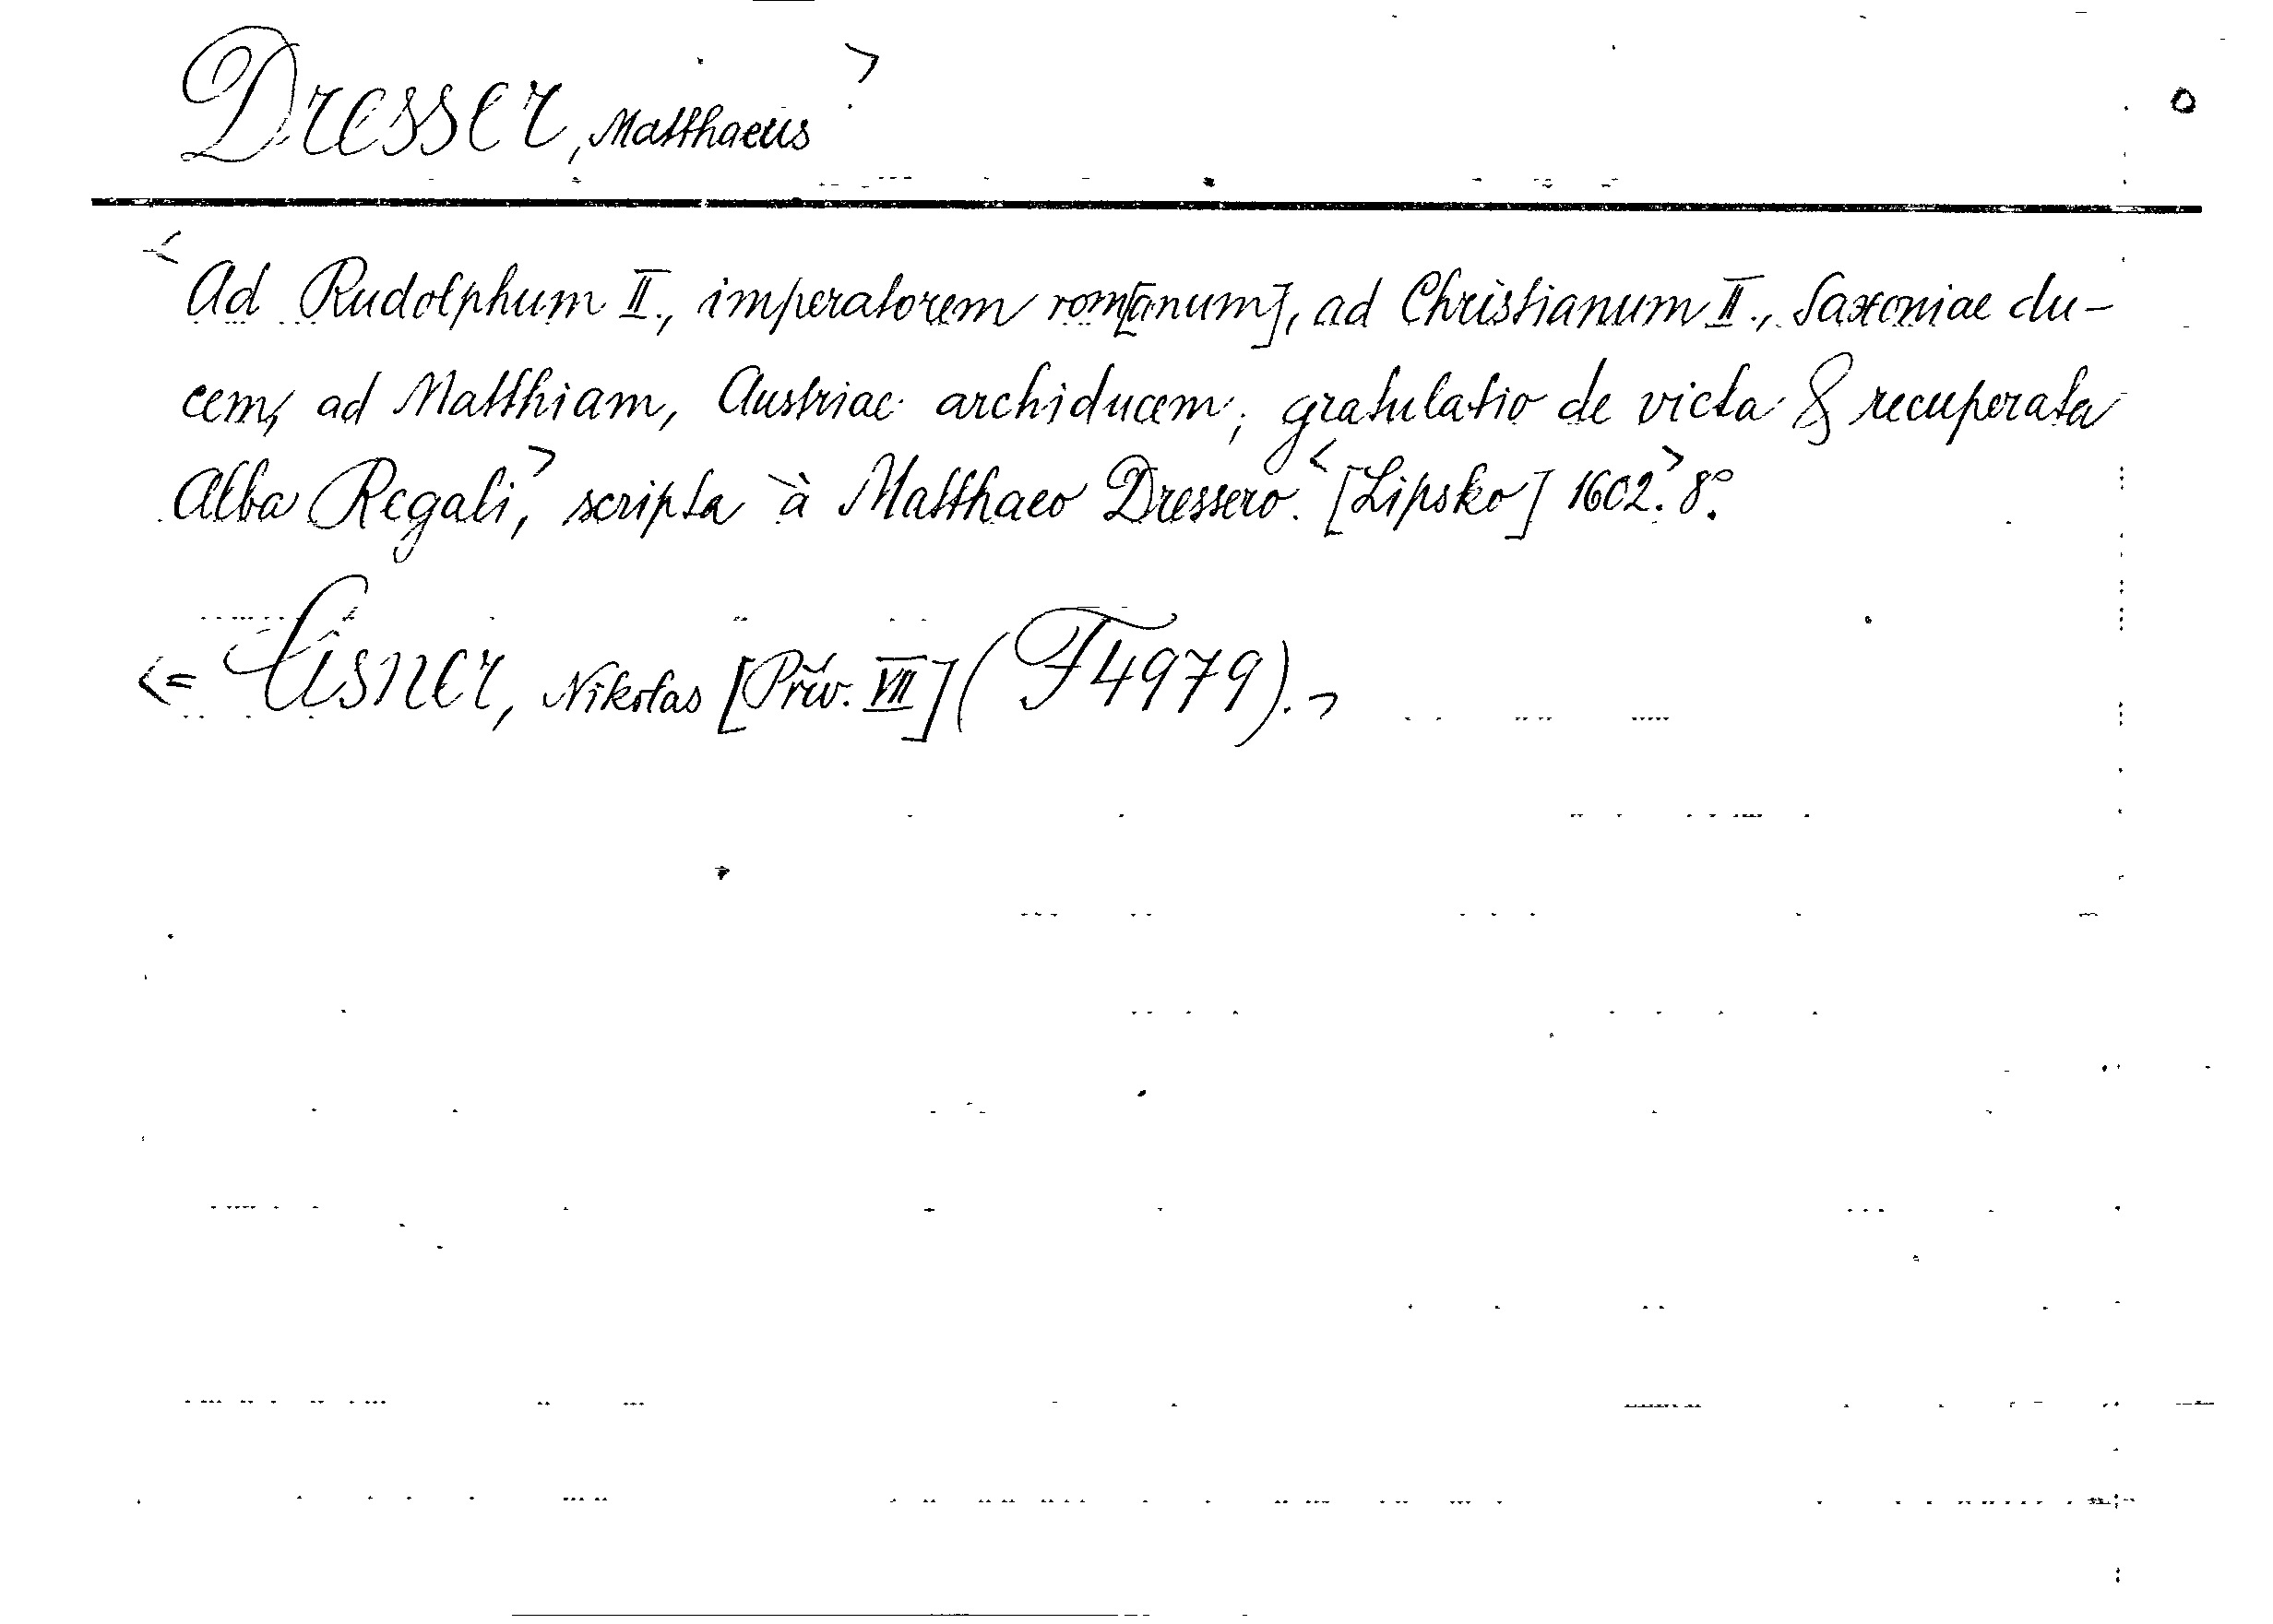 Dresser, Matthaeus >
< Ad Rudolphum II., imperatorem rom[anum], ad Christianum II., Saxoniae du-
cem, ad Matthiam, Austriae archiducem, gratulatio de victa & recuperata
Alba Regali,> scripta à Matthaeo Dressero. <[Lipsko] 1602.> 8°.
<= Cisner, Nikolas [Přív. VII] (F 4979).>